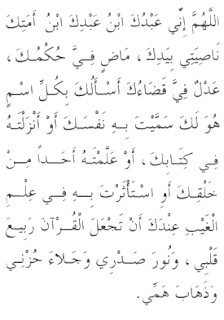 اللَّهُمَّ إِنِّي عَبْدُكَ ابْنُ عَبْدِكَ ابْنُ أَمَتِكَ
نَاصِيَتِي بِيَدِكَ، مَاضٍ فِيَّ حُكْمُكَ،
عَدْلٌ فِيَّ قَضَاءُكَ أَسْأَلُكَ بِكُلِّ اسْمٍ
هُوَ لَكَ سَمَّيْتَ بِهِ نَفْسَكَ أَوْ أَنْزَلْتَهُ
فِي كِتَابِكَ، أَوْ عَلَّمْتَهُ أَحَداً مِنْ
خَلْقِكَ أَوِ اسْتَأْثَرْتَ بِهِ فِي عِلْمِ
الْغَيْبِ عِنْدَكَ أَنْ تَجْعَلَ الْقُرْآنَ رَبِيعَ
قَلْبِي، وَنُورَ صَدْرِي وَجَلَاءَ حُزْنِي
وَذَهَابَ هَمِّي.